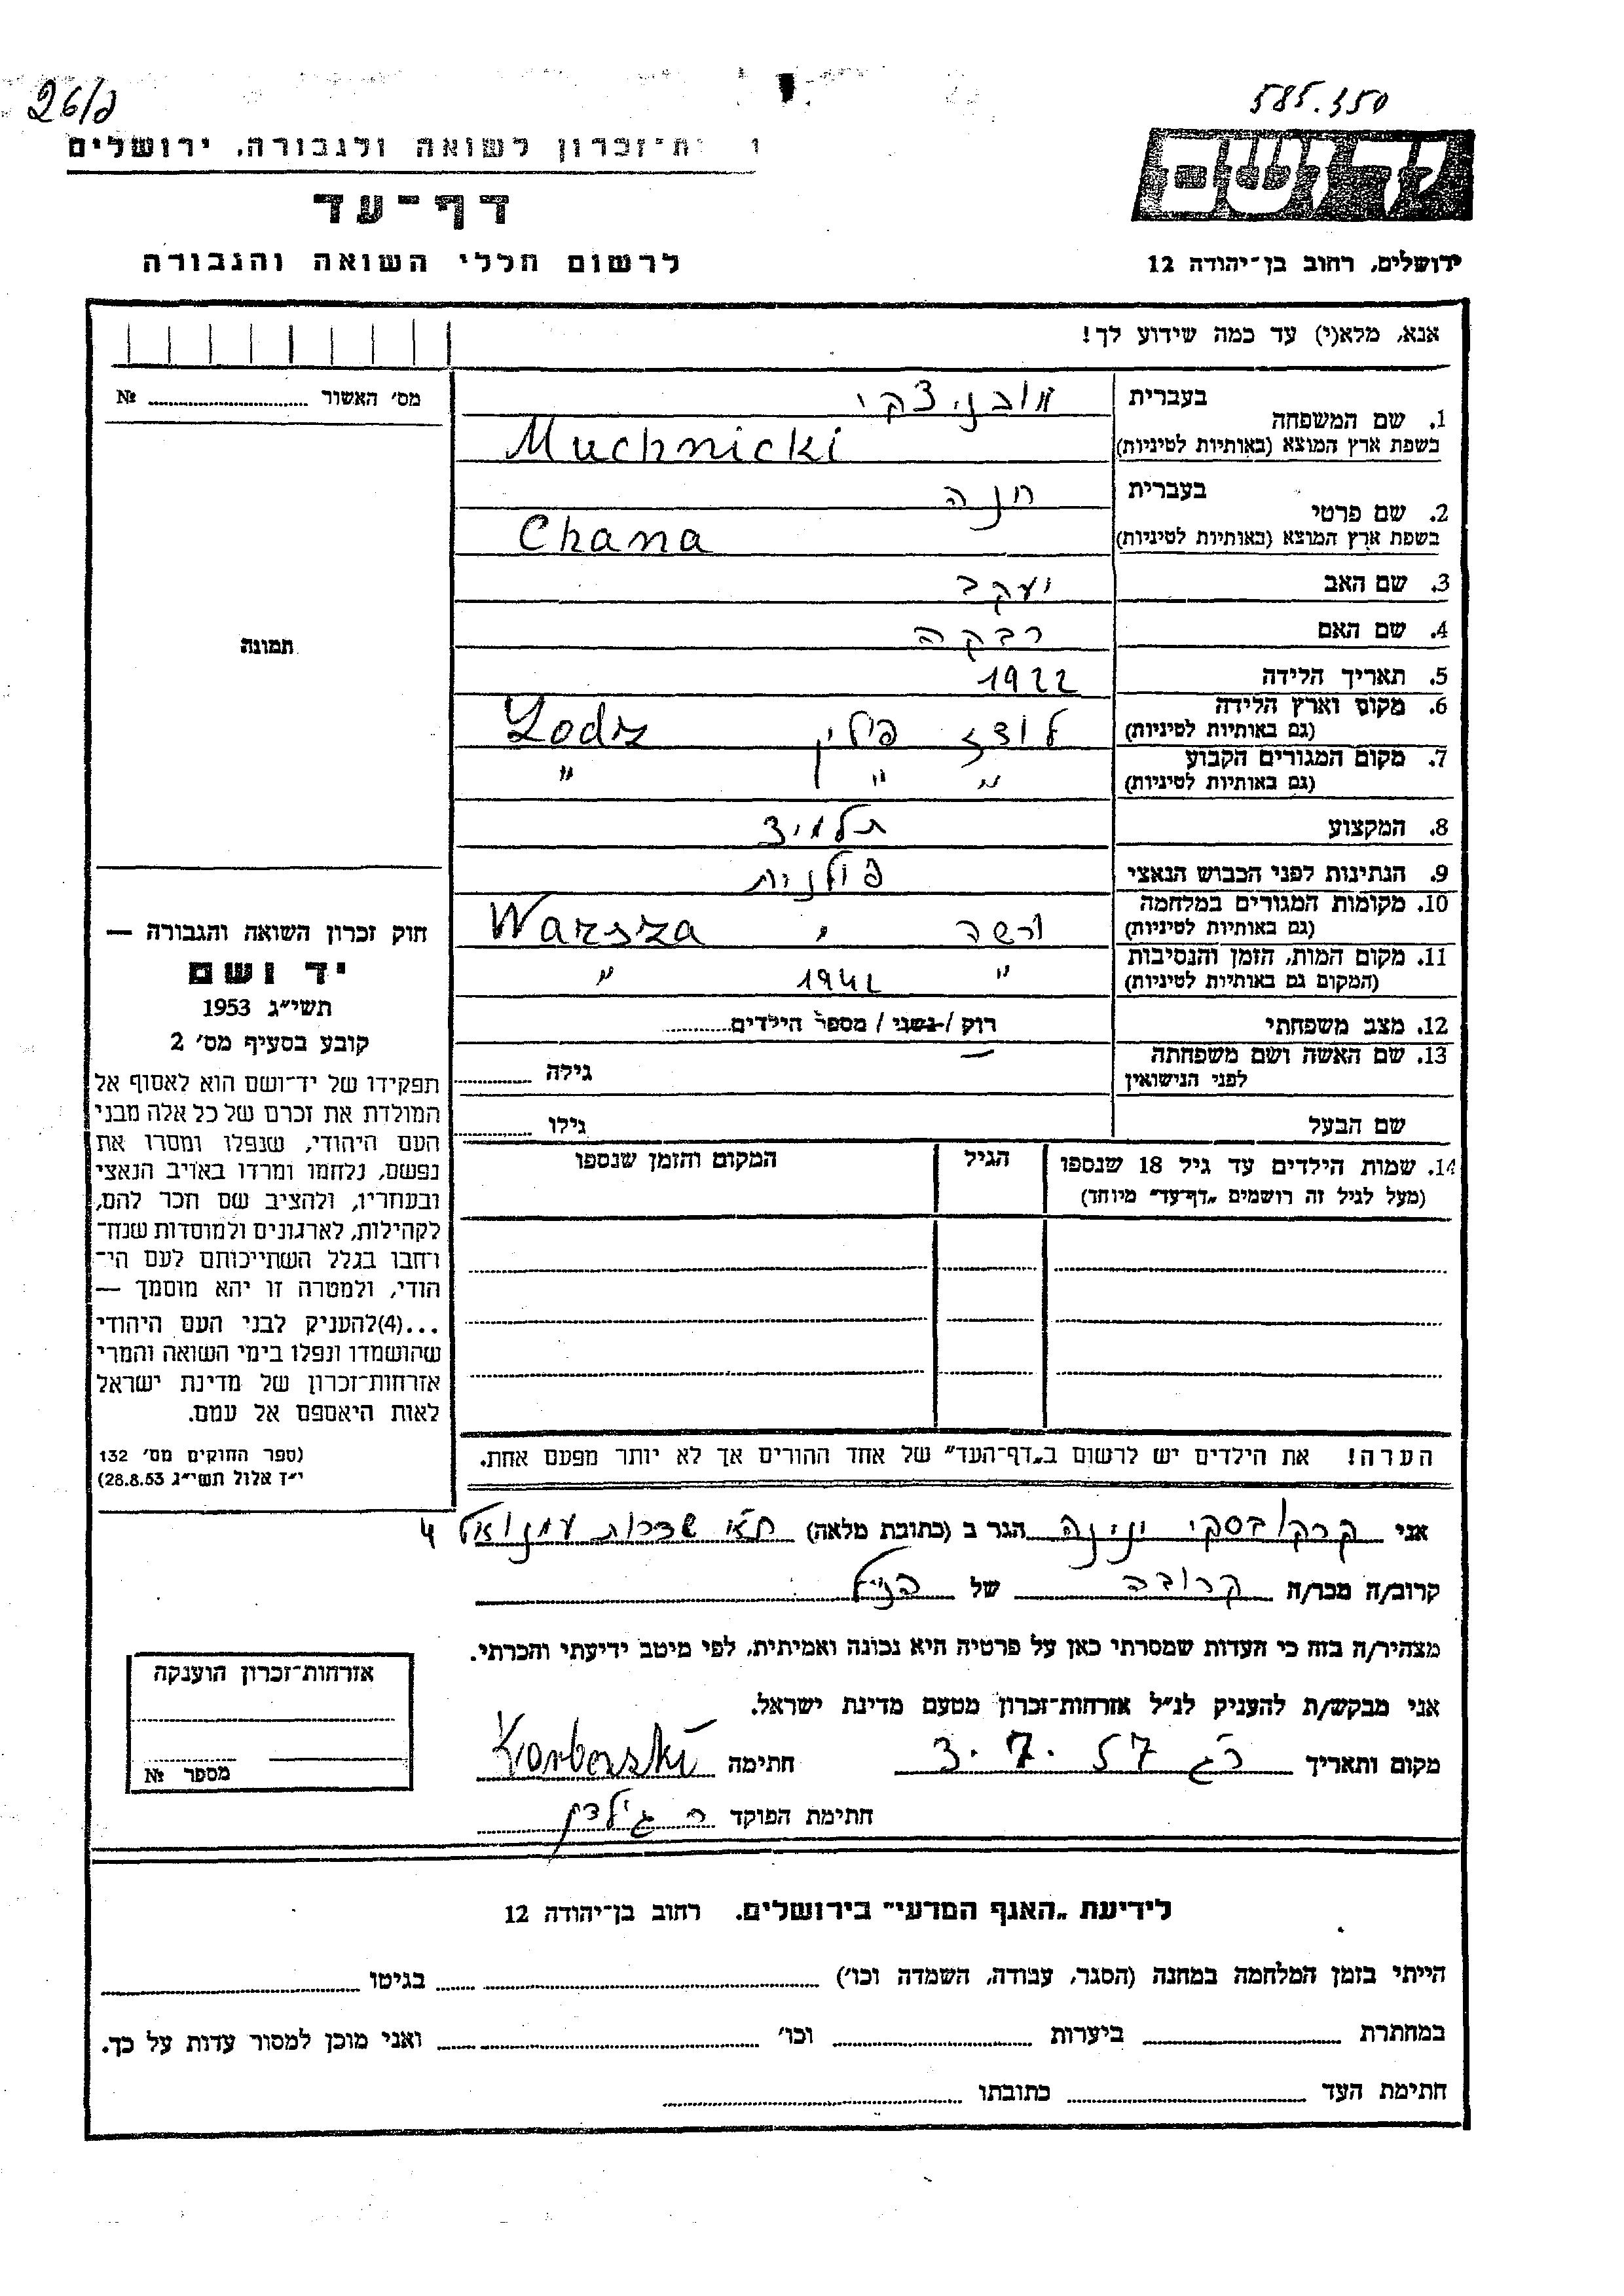 26/ג
585.350
ת־זכרון לשואה ולגבורה. ירושלים
דף־עד
לרשום חללי השואה והגבורה
יד ושם
ירושלים, רחוב בן־יהודה 12
אנא, מלא(י) עד כמה שידוע לך!
מס' האשור № 
1. שם המשפחה
בעברית מוכניצקי
בשפת ארץ המוצא (באותיות לטיניות) Muchnicki
2. שם פרטי
בעברית חנה
בשפת ארץ המוצא (באותיות לטיניות) Chana
3. שם האב יעקב
4. שם האם רבקה
5. תאריך הלידה 1922
6. מקום וארץ הלידה (גם באותיות לטיניות) לודז פולין Lodz
7. מקום המגורים הקבוע (גם באותיות לטיניות) " " "
8. המקצוע תלמיד
9. הנתינות לפני הכבוש הנאצי פולנית
10. מקומות המגורים במלחמה (גם באותיות לטיניות) ורשה Warsza
11. מקום המות, הזמן והנסיבות (המקום גם באותיות לטיניות) " 1942 "
12. מצב משפחתי רוק / נשוי / מספר הילדים
13. שם האשה ושם משפחתה לפני הנישואין גילה
שם הבעל גילו
14. שמות הילדים עד גיל 18 שנספו (מעל לגיל זה רושמים „דף־עד" מיוחד)
הגיל
המקום והזמן שנספו
תמונה
חוק זכרון השואה והגבורה —
יד ושם
תשי"ג 1953
קובע בסעיף מס' 2
תפקידו של יד־ושם הוא לאסוף אל
המולדת את זכרם של כל אלה מבני
העם היהודי, שנפלו ומסרו את
נפשם, נלחמו ומרדו באויב הנאצי
ובעוזריו, ולהציב שם וזכר להם,
לקהילות, לארגונים ולמוסדות שנח־
רבו בגלל השתייכותם לעם הי־
הודי, ולמטרה זו יהא מוסמך —
...(4)להעניק לבני העם היהודי
שהושמדו ונפלו בימי השואה והמרי
אזרחות־זכרון של מדינת ישראל
לאות היאספם אל עמם.
(ספר החוקים מס' 132
י"ז אלול תשי"ג 28.8.53)
הערה! את הילדים יש לרשום ב„דף־העד" של אחד ההורים אך לא יותר מפעם אחת.
אני הגר ב (כתובת מלאה) ת"א שדרות עמנואל 4
קרוב/ה מכר/ה קרובה של הנ"ל
מצהיר/ה בזה כי העדות שמסרתי כאן על פרטיה היא נכונה ואמיתית, לפי מיטב ידיעתי והכרתי.
אני מבקש/ת להעניק לנ"ל אזרחות־זכרון מטעם מדינת ישראל.
מקום ותאריך ר"ג 3.7.57 חתימה
חתימת הפוקד
אזרחות־זכרון הוענקה
מספר №
לידיעת „האגף המדעי" בירושלים. רחוב בן־יהודה 12
הייתי בזמן המלחמה במחנה (הסגר, עבודה, השמדה וכו') בגיטו
במחתרת ביערות וכו' ואני מוכן למסור עדות על כך.
חתימת העד כתובתו